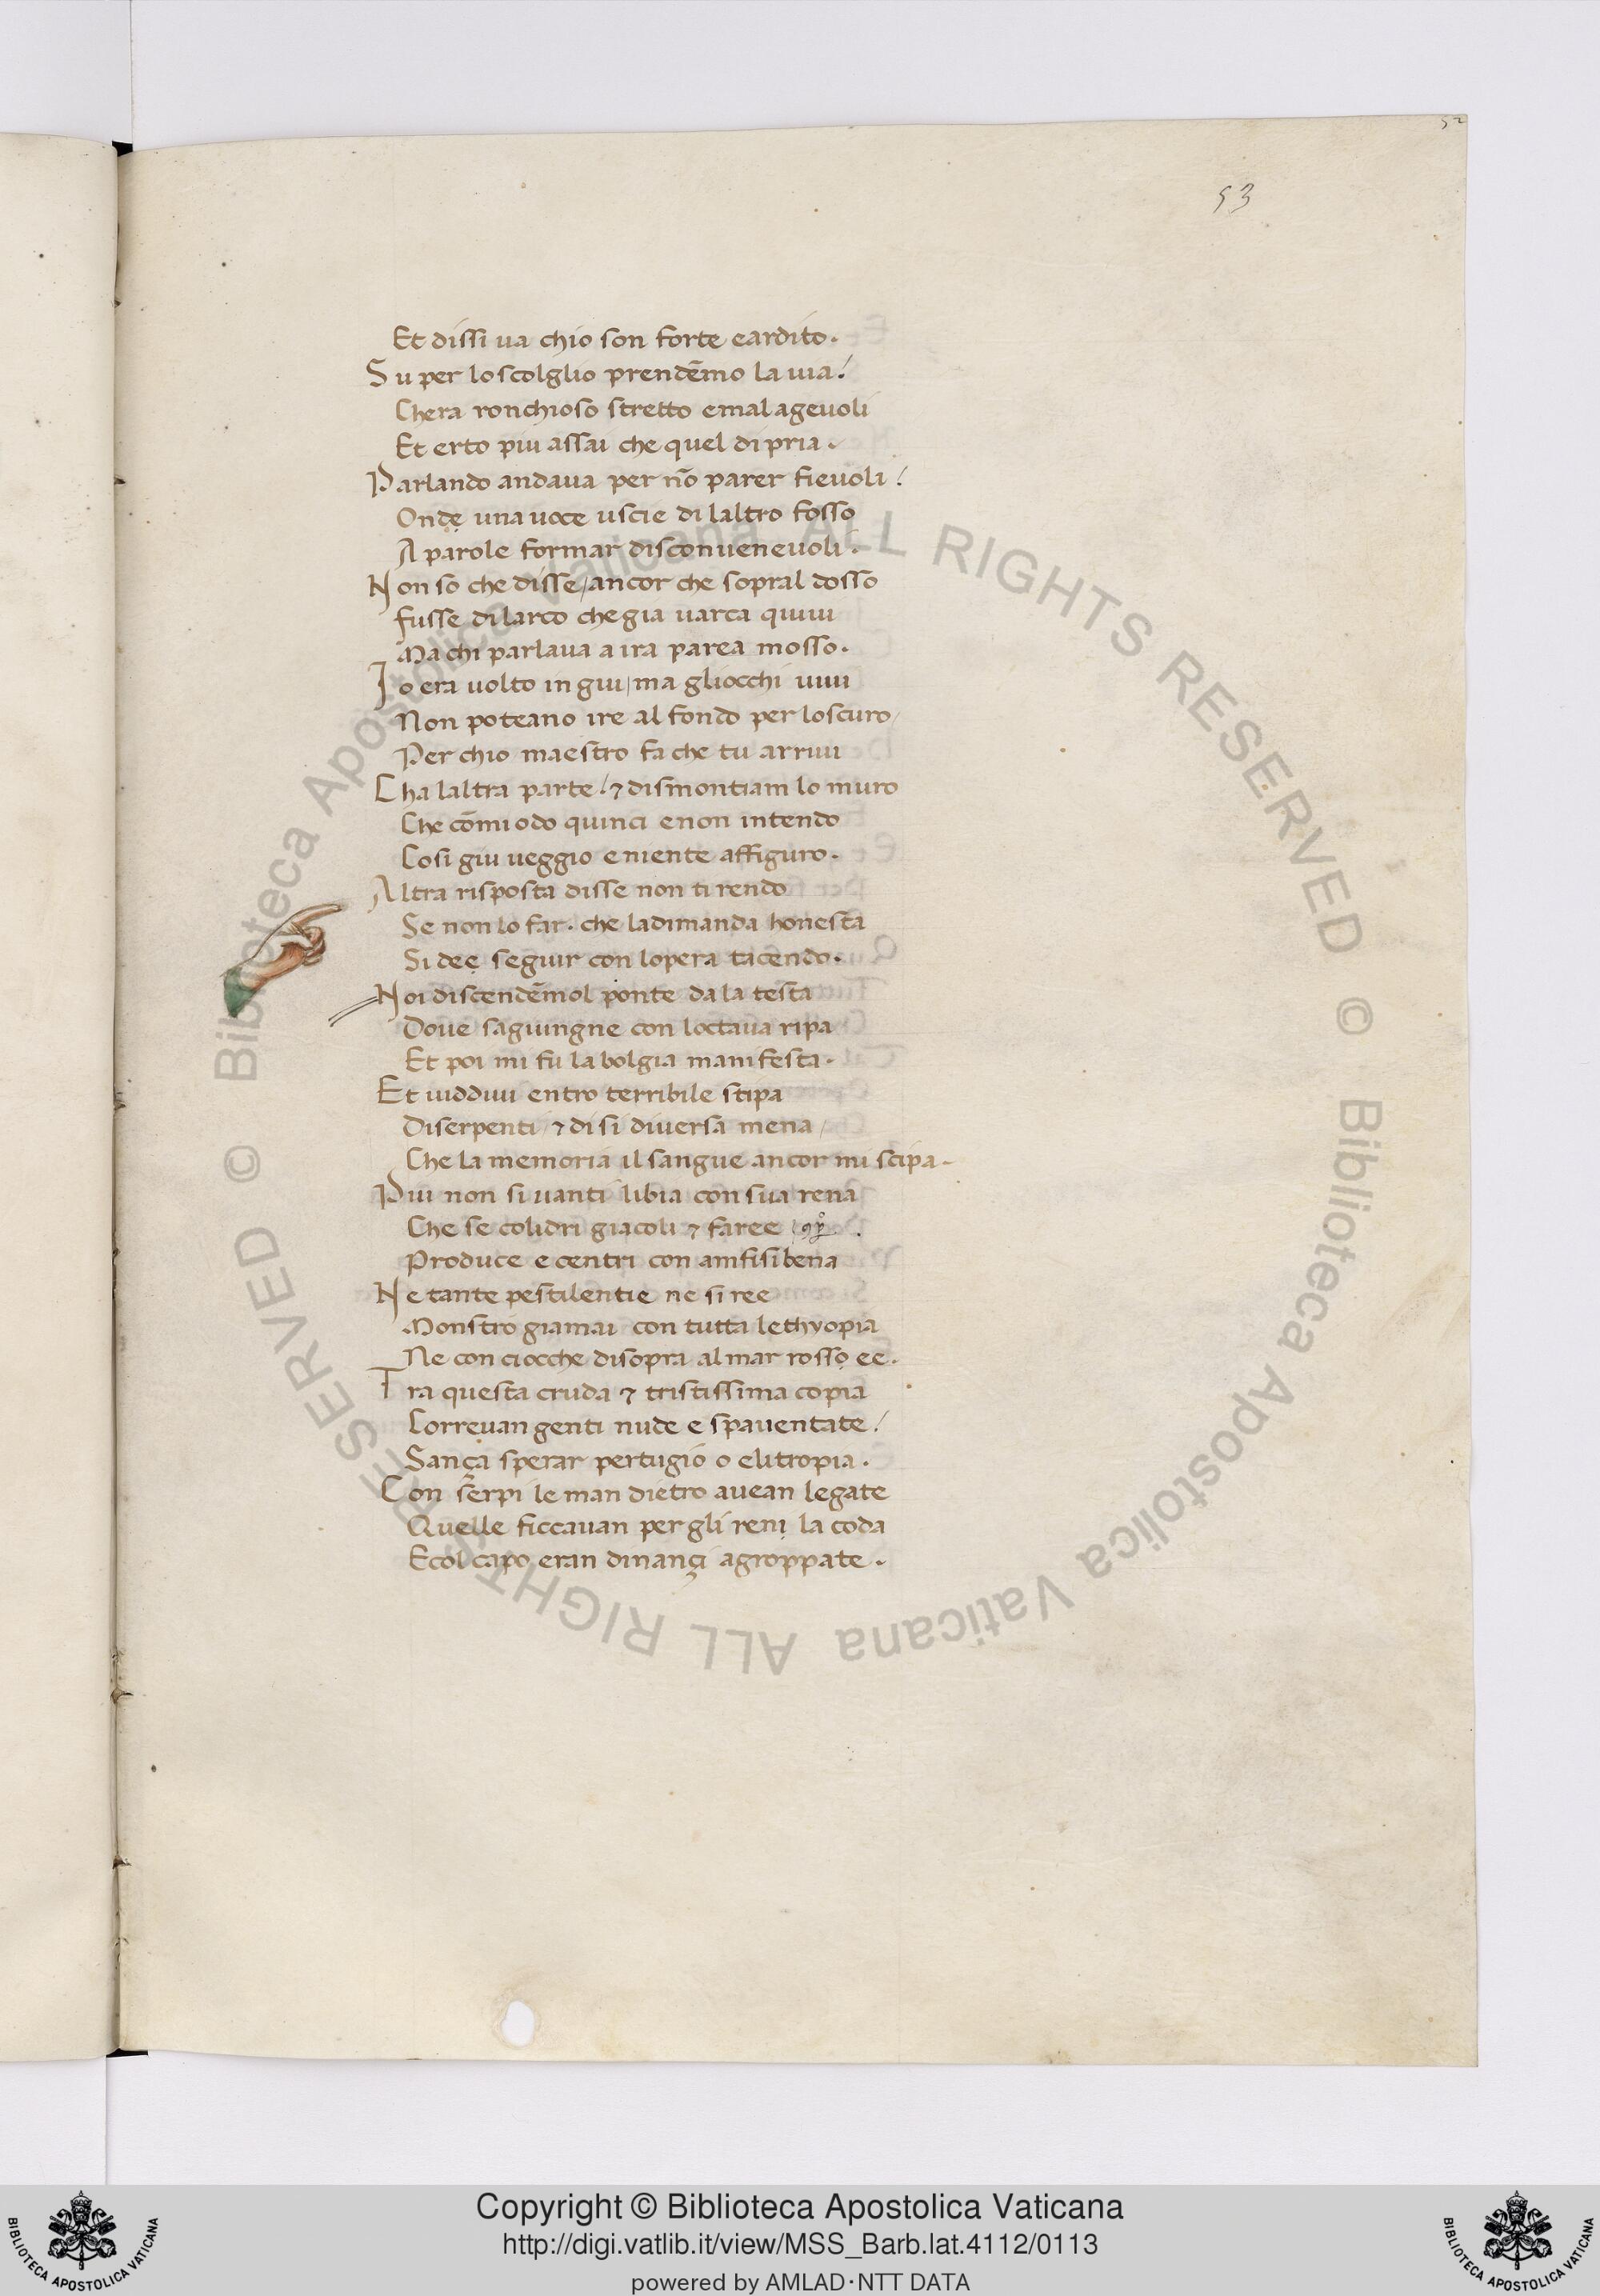 52
53
Et dissi ua chio son forte eardito.
Su per loscolglio prendēmo la uia!
Chera ronchioso stretto emal ageuoli
Et erto piu assai che quel di pria.
Parlando andaua per nō parer fieuoli!
Onde una uoce uscie di laltro fosso
A parole formar disconueneuoli.
Non so che disse/ancor che sopral dosso
fusse dilarco chegia uarca quiui
Ma chi parlaua a ira parea mosso.
Io era uolto in giu/ma gliocchi uiui
Non poteano ire al fondo per loscuro/
Per chio maestro fa che tu arriui
Cha laltra parte! ⁊ dismontiam lo muro
Che cōmiodo quinci enon intendo
Cosi giu ueggio eniente affiguro.
Altra risposta disse non ti rendo
Se non lo far. che ladimanda honesta
Si dee seguir con lopera tacendo.
Noi discendēmol ponte da la testa
Doue sagiuingne con loctaua ripa
Et poi mi fu la bolgia manifesta.
Et uidduui entro terribile stipa
Diserpenti/ ⁊ di si diuersa mena/
Che la memoria il sangue ancor mi scipa.
Piu non si uanti libia con sua rena
Che se colidri giacoli ⁊ faree
Produce e centri con amfisibena
Ne tante pestilentie ne si ree
Monstro giamai con tutta lethyopia
Ne con ciocche disopra al mar rosso ee.
Tra questa cruda ⁊ tristissima copia
Correuan genti nude e spauentate!
Sança sperar pertugio o elitropia.
Con serpi le man dietro auean legate
Quelle ficcauan per gli reni la coda
Ecol capo eran dinançi agroppate.
© Biblioteca Apostolica Vaticana ALL RIGHTS RESERVED © Biblioteca Apostolica Vaticana ALL RIGHTS RESERVED
Copyright © Biblioteca Apostolica Vaticana
http://digi.vatlib.it/view/MSS_Barb.lat.4112/0113
powered by AMLAD·NTT DATA
BIBLIOTECA APOSTOLICA VATICANA
BIBLIOTECA APOSTOLICA VATICANA